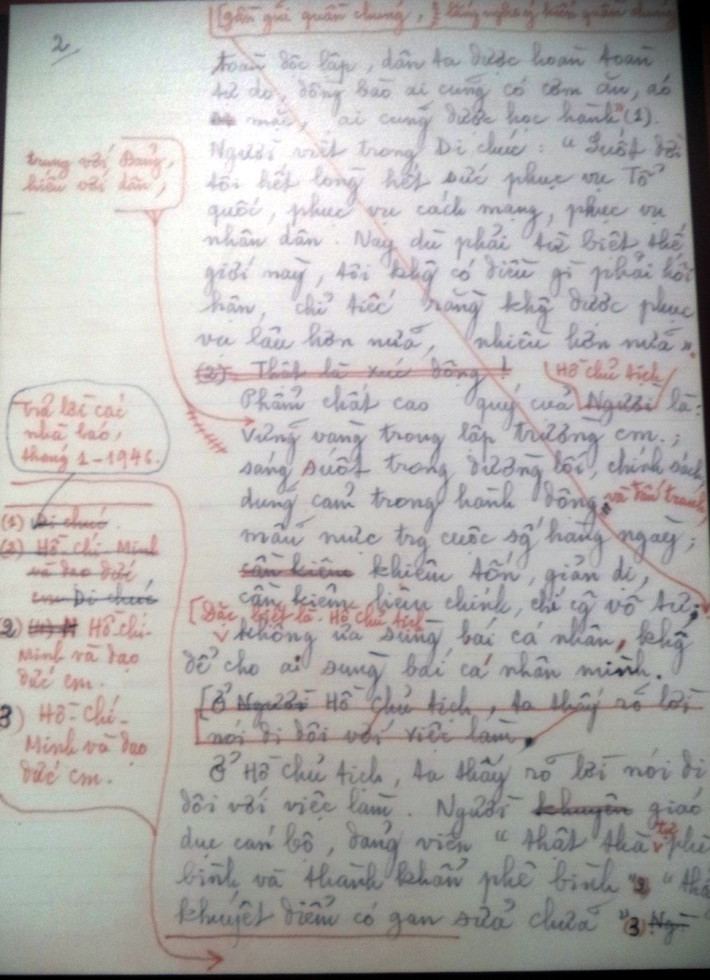 [gần gũi quần chúng, lắng nghe ý kiến quần chúng
2,
toàn độc lập, dân ta được hoàn toàn
tự do, đồng bào ai cũng có cơm ăn, áo
mặc, ai cũng được học hành" (1).
Người viết trong Di chúc : "Suốt đời
trung với Đảng,
hiếu với dân,
tôi hết lòng hết sức phục vụ Tổ
quốc, phục vụ cách mạng, phục vụ
nhân dân. Nay dù phải từ biệt thế
giới này, tôi khg có điều gì phải hối
hận, chỉ tiếc rằng khg được phục
vụ lâu hơn nữa, nhiều hơn nữa".
(2). Thật là xúc động !
Hồ chủ tịch
Phẩm chất cao quý của Người là :
Trả lời các
nhà báo,
tháng 1-1946.
Vững vàng trong lập trường cm. ;
sáng suốt trong đường lối, chính sách
dũng cảm trong hành động,
và đấu tranh,
mẫu mực trg cuộc sg hàng ngày ;
(1) Di chúc.
(2) Hồ Chí Minh
và đạo đức
cm Di chúc
cần kiệm khiêm tốn, giản dị,
cần kiệm liêm chính, chí cg vô tư ;
[Đặc biệt là Hồ chủ tịch
không ưa sùng bái cá nhân, khg
để cho ai sùng bái cá nhân mình.
2) Hồ Chí-
Minh và đạo
đức cm.
[Ở Người Hồ chủ tịch, ta thấy rõ lời
nói đi đôi với việc làm.
3) Hồ-Chí-
Minh và đạo
đức cm.
Ở Hồ chủ tịch, ta thấy rõ lời nói đi
đôi với việc làm. Người khuyên giáo
dục cán bộ, đảng viên "thật thà tự phê
bình và thành khẩn phê bình" "thấy
khuyết điểm có gan sửa chữa" (3)